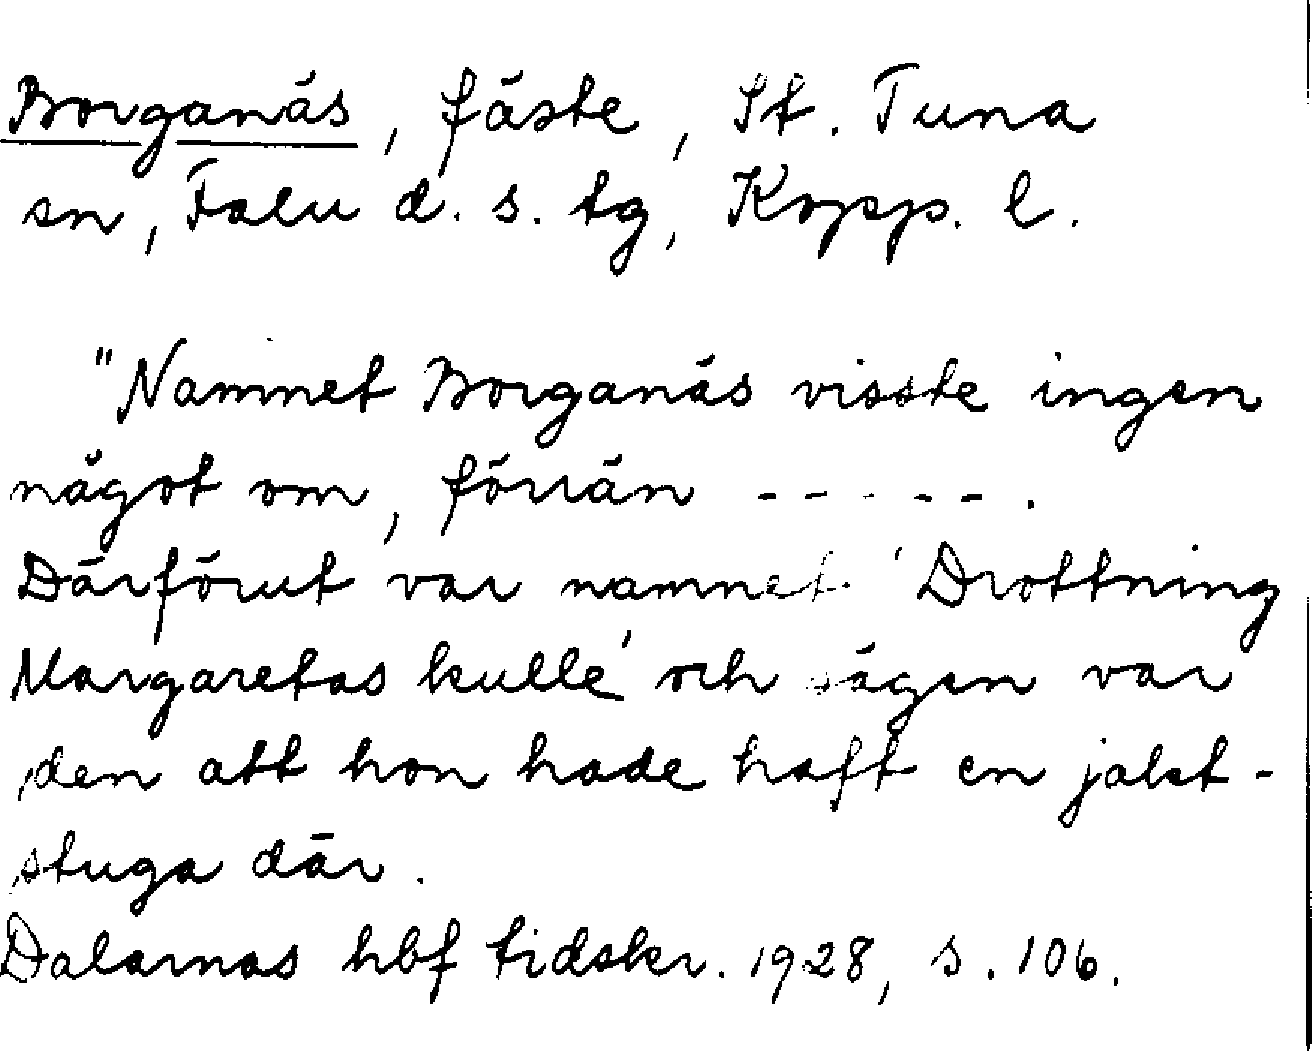 Borganäs, fäste, St. Tuna
sn, Falu d. s. tg, Kopp. l.
"Namnet Borganäs visste ingen
något om, förrän - - - - - .
Därförut var namnet 'Drottning
Margaretas kulle' och sägen var
den att hon hade haft en jakt-
stuga där.
Dalarnas hbf tidskr. 1928, s. 106.